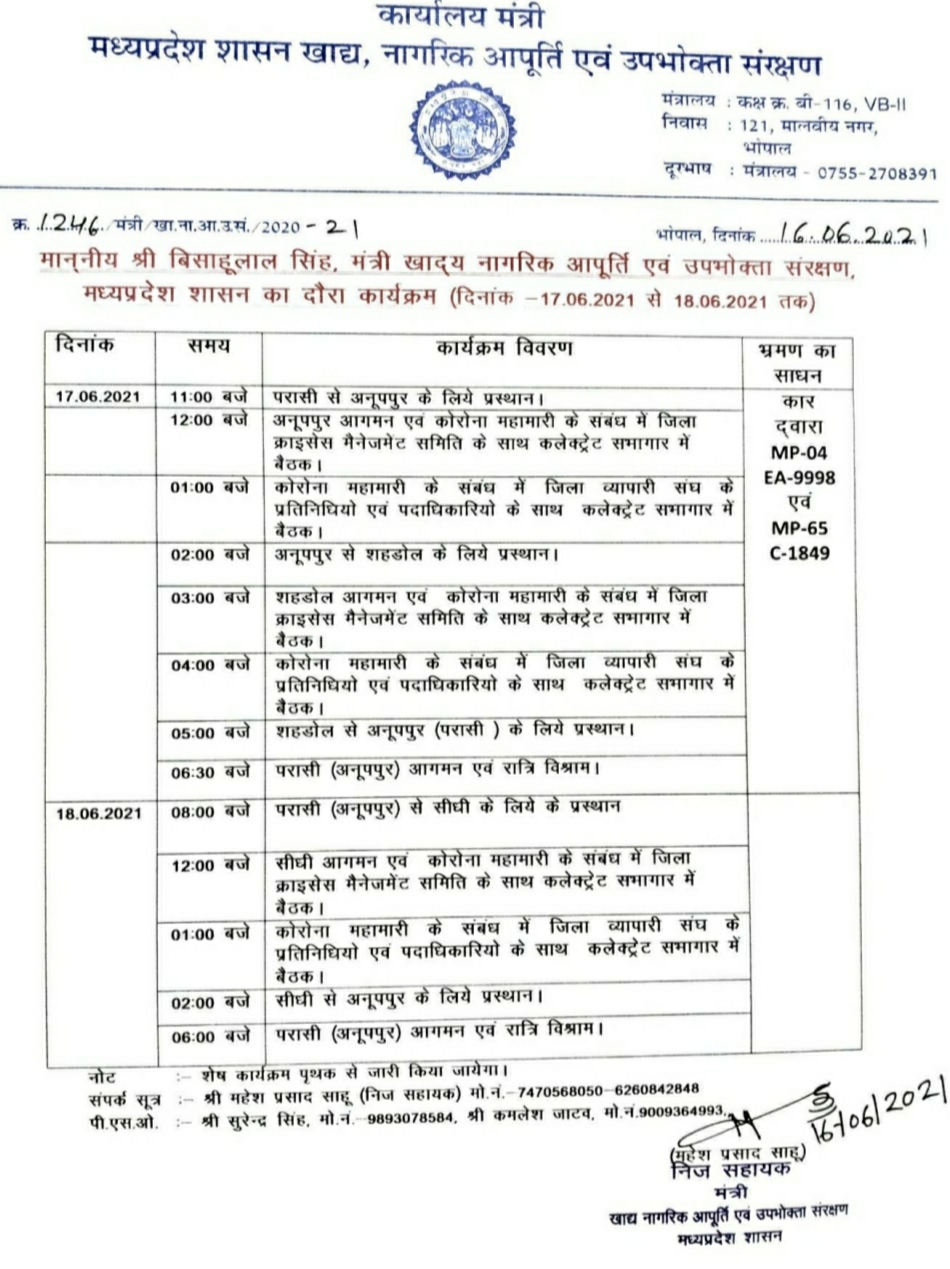 कार्यालय मंत्री
मध्यप्रदेश शासन खाद्य, नागरिक आपूर्ति एवं उपभोक्ता संरक्षण
मंत्रालय : कक्ष क्र. बी-116, VB-II
निवास : 121, मालवीय नगर,
भोपाल
दूरभाष : मंत्रालय - 0755-2708391
क्र. 1246 /मंत्री/खा.ना.आ.उ.सं./2020-21
भोपाल, दिनांक 16.06.2021
माननीय श्री बिसाहूलाल सिंह, मंत्री खाद्य नागरिक आपूर्ति एवं उपभोक्ता संरक्षण,
मध्यप्रदेश शासन का दौरा कार्यक्रम (दिनांक -17.06.2021 से 18.06.2021 तक)
दिनांक समय कार्यक्रम विवरण भ्रमण का
साधन
17.06.2021 11:00 बजे परासी से अनूपपुर के लिये प्रस्थान।
कार
द्वारा
MP-04
EA-9998
एवं
MP-65
C-1849
12:00 बजे अनूपपुर आगमन एवं कोरोना महामारी के संबंध में जिला
क्राइसेस मैनेजमेंट समिति के साथ कलेक्ट्रेट सभागार में
बैठक।
01:00 बजे कोरोना महामारी के संबंध में जिला व्यापारी संघ के
प्रतिनिधियो एवं पदाधिकारियो के साथ कलेक्ट्रेट सभागार में
बैठक।
02:00 बजे अनूपपुर से शहडोल के लिये प्रस्थान।
03:00 बजे शहडोल आगमन एवं कोरोना महामारी के संबंध में जिला
क्राइसेस मैनेजमेंट समिति के साथ कलेक्ट्रेट सभागार में
बैठक।
04:00 बजे कोरोना महामारी के संबंध में जिला व्यापारी संघ के
प्रतिनिधियो एवं पदाधिकारियो के साथ कलेक्ट्रेट सभागार में
बैठक।
05:00 बजे शहडोल से अनूपपुर (परासी ) के लिये प्रस्थान।
06:30 बजे परासी (अनूपपुर) आगमन एवं रात्रि विश्राम।
18.06.2021 08:00 बजे परासी (अनूपपुर) से सीधी के लिये के प्रस्थान
12:00 बजे सीधी आगमन एवं कोरोना महामारी के संबंध में जिला
क्राइसेस मैनेजमेंट समिति के साथ कलेक्ट्रेट सभागार में
बैठक।
01:00 बजे कोरोना महामारी के संबंध में जिला व्यापारी संघ के
प्रतिनिधियो एवं पदाधिकारियो के साथ कलेक्ट्रेट सभागार में
बैठक।
02:00 बजे सीधी से अनूपपुर के लिये प्रस्थान।
06:00 बजे परासी (अनूपपुर) आगमन एवं रात्रि विश्राम।
नोट :- शेष कार्यक्रम पृथक से जारी किया जायेगा।
संपर्क सूत्र :- श्री महेश प्रसाद साहू (निज सहायक) मो.नं.-7470568050-6260842848
पी.एस.ओ. :- श्री सुरेन्द्र सिंह, मो.नं.-9893078584, श्री कमलेश जाटव, मो.नं.9009364993,
16/06/2021
(महेश प्रसाद साहू)
निज सहायक
मंत्री
खाद्य नागरिक आपूर्ति एवं उपभोक्ता संरक्षण
मध्यप्रदेश शासन